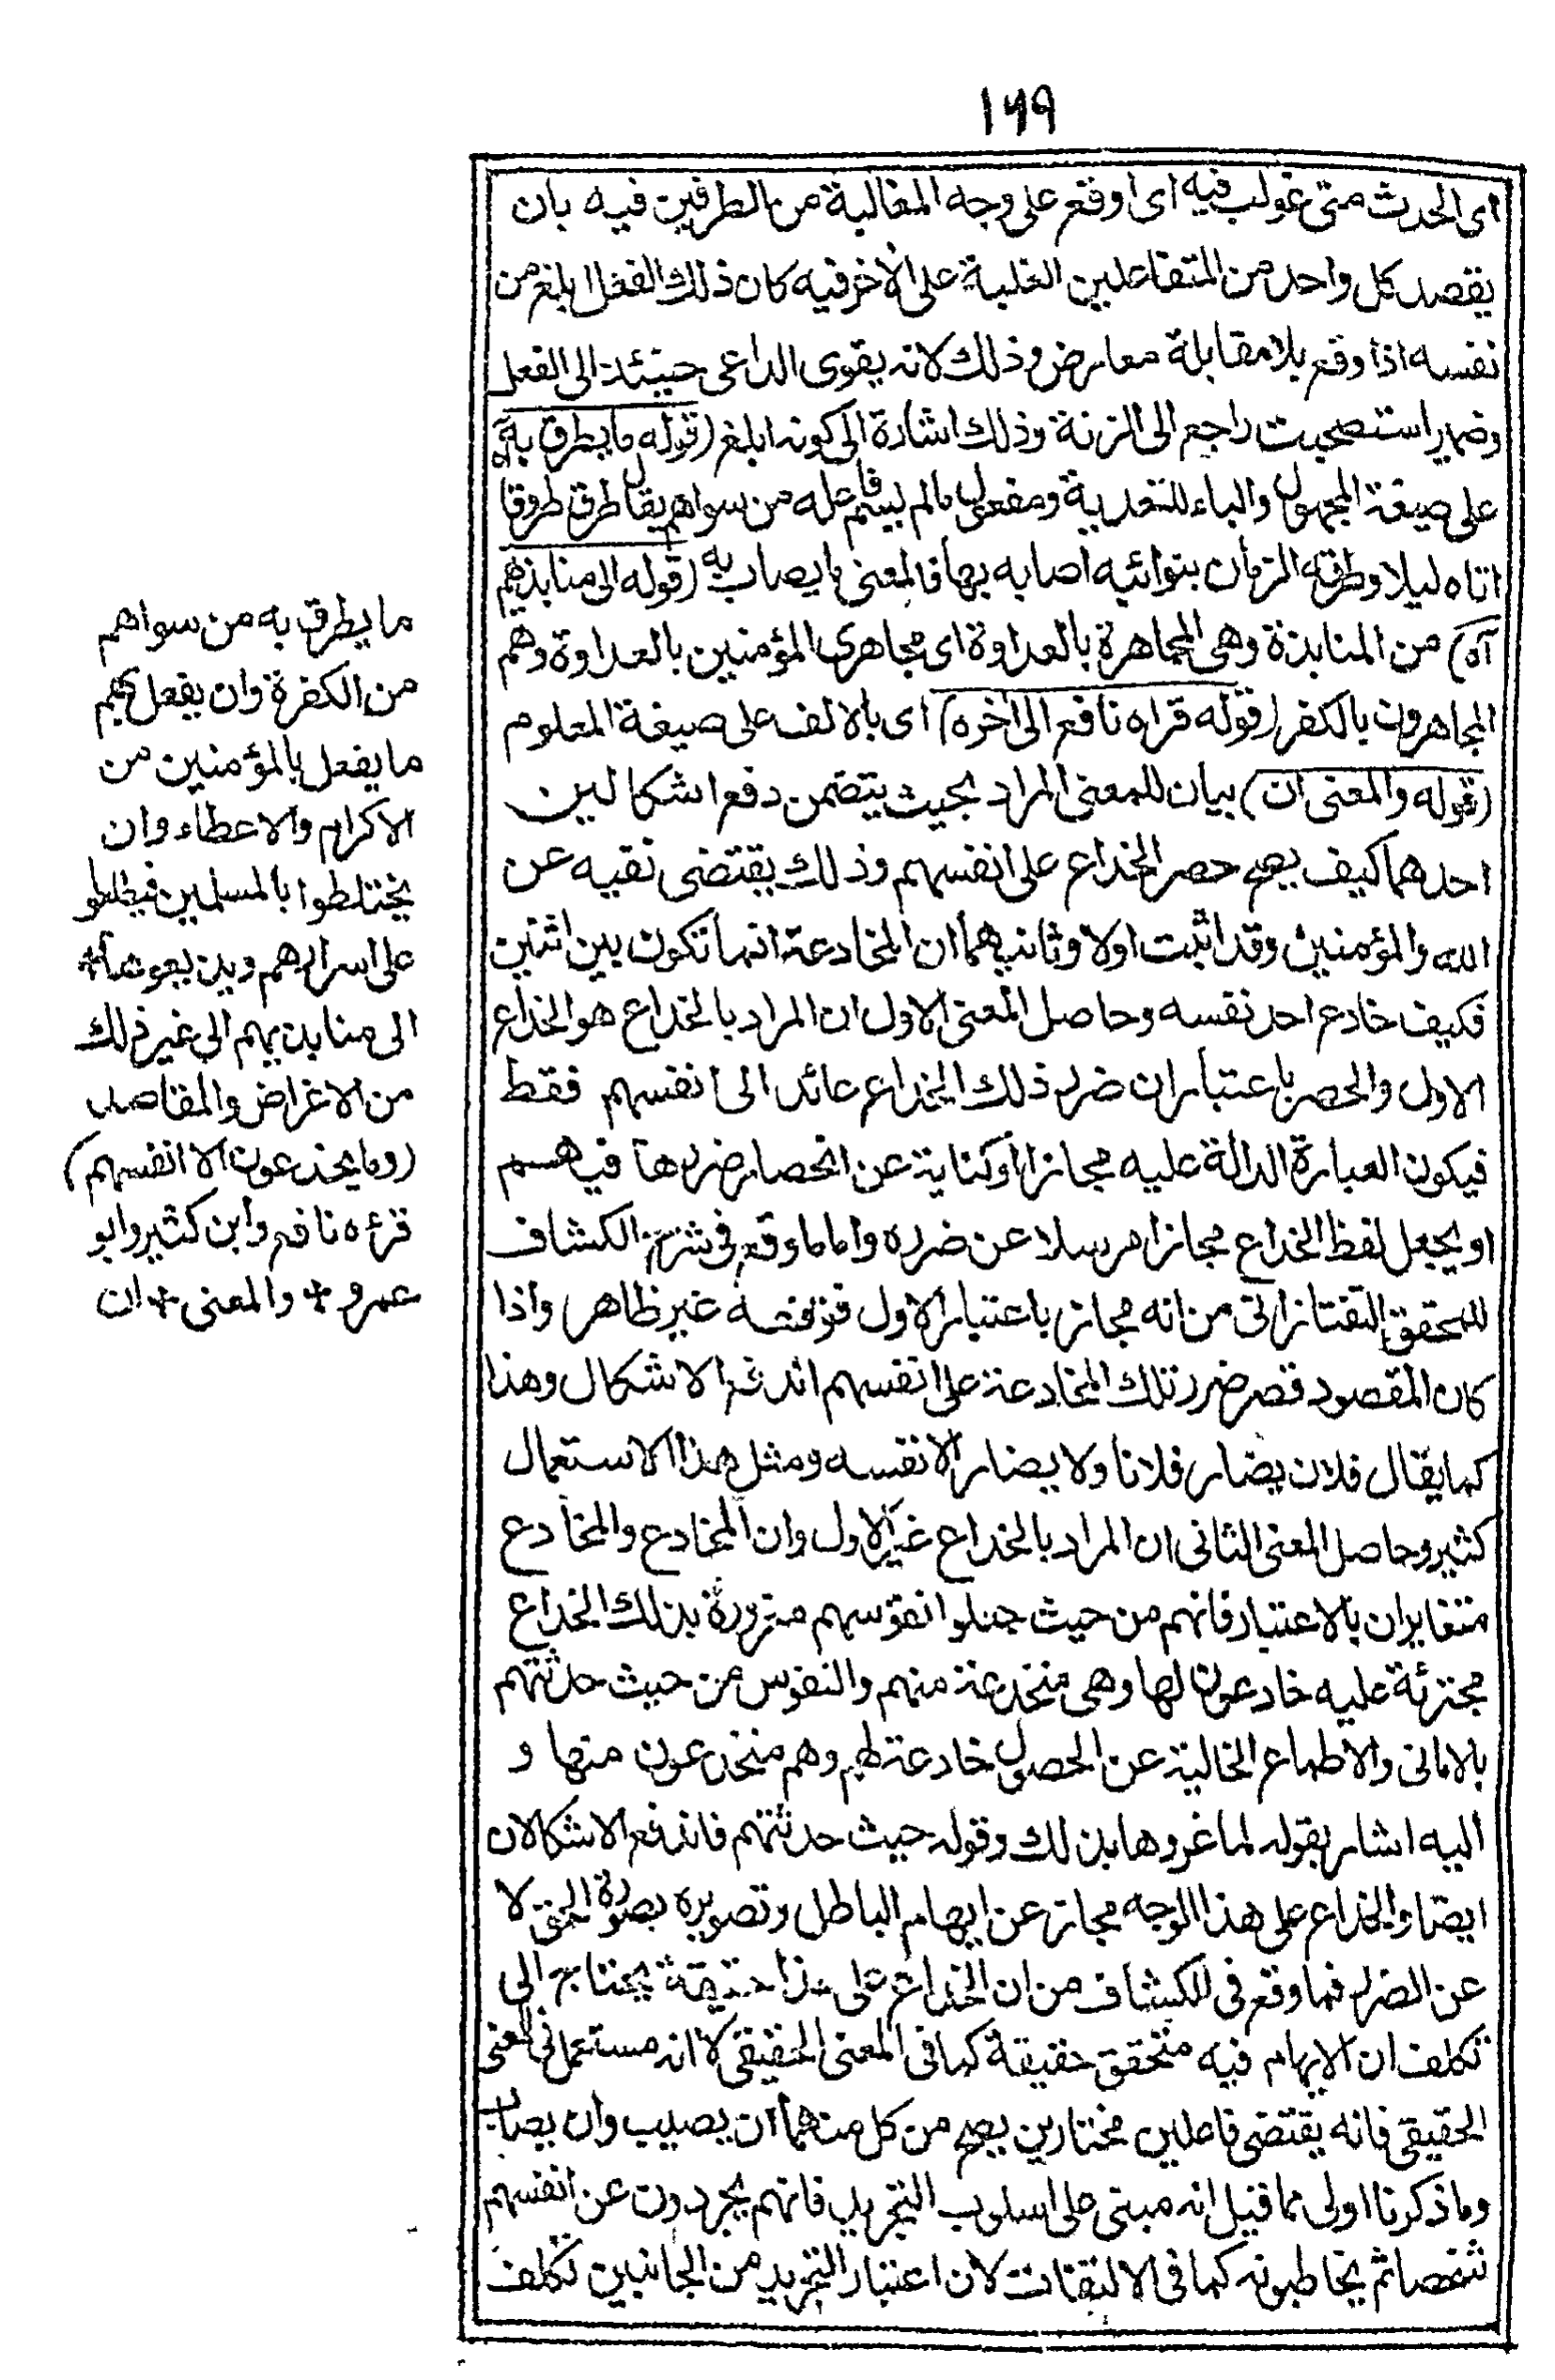 ١٦٩
اى الحدث متى غولب فيه اى اوقع على وجه المغالبة من الطرفين فيه بان
يقصد كل واحد من المتفاعلين الغلبة على الاخر فيه كان ذلك الفعل ابلغ من
نفسه اذا وقع بلا مقابلة معارض وذلك لانه يقوى الداعى حينئذ الى الفعل
وضمير استصحبت راجع الى الزنة وذلك اشارة الى كونه ابلغ (قوله ما يطرق به آه)
على صيغة المجهول والباء للتعدية ومفعول مالم يسم فاعله من سواهم يقال طرق طروقا
اتاه ليلا وطرقه الزمان بنوائبه اصابه بها فالمعنى ما يصاب به (قوله الى منابذيهم
آه) من المنابذة وهى المجاهرة بالعداوة اى مجاهرى المؤمنين بالعداوة وهم
المجاهرون بالكفر (قوله قراه نافع الى اخره) اى بالالف على صيغة المعلوم
(قوله والمعنى ان) بيان للمعنى المراد بحيث يتضمن دفع اشكالين
احدهما كيف يصح حصر الخداع على انفسهم وذلك يقتضى نفيه عن
الله والمؤمنين وقد اثبت اولا وثانيهما ان المخادعة انما تكون بين اثنين
فكيف خادع احد نفسه وحاصل المعنى الاول ان المراد بالخداع هو الخداع
الاول والحصر باعتبار ان ضرر ذلك الخداع عائد الى انفسهم فقط
فيكون العبارة الدالة عليه مجازا او كناية عن انحصار ضررها فيهم
او يجعل لفظ الخداع مجازا مرسلا عن ضرره واما ما وقع فى شرح الكشاف
للمحقق التفتازانى من انه مجاز باعتبار الاول فوقفه غير ظاهر واذا
كان المقصود قصر ضرر تلك المخادعة على انفسهم اندفع الاشكال وهذا
كما يقال فلان يضار فلانا ولا يضار الا نفسه ومثل هذا الاستعمال
كثير وحاصل المعنى الثانى ان المراد بالخداع غير الاول وان المخادع والمخادع
متغايران بالاعتبار فانهم من حيث جعلوا نفوسهم مغرورة بذلك الخداع
مجترئة عليه خادعون لها وهى منخدعة منهم والنفوس من حيث حدثتهم
بالامانى والاطماع الخالية عن الحصول خادعة لهم وهم منخدعون منها و
اليه اشار بقوله لما غروها بذلك وقوله حيث حدثتهم فاندفع الاشكالان
ايضا والخداع على هذا الوجه مجاز عن ايهام الباطل وتصويره بصورة الحق لا
عن الضرر فما وقع فى الكشاف من ان الخداع على هذا حقيقة يحتاج الى
تكلف ان الايهام فيه متحقق حقيقة كما فى المعنى الحقيقى لا انه مستعمل فى المعنى
الحقيقى فانه يقتضى فاعلين مختارين يصح من كل منهما ان يصيب وان يصاب
وما ذكرنا اولى مما قيل انه مبنى على اسلوب التجريد فانهم يجردون عن انفسهم
شخصا ثم يخاطبونه كما فى الالتفات لان اعتبار التجريد من الجانبين تكلف
ما يطرق به من سواهم
من الكفرة وان يفعل بهم
ما يفعل بالمؤمنين من
الاكرام والاعطاء وان
يختلطوا بالمسلمين فيطلعوا
على اسرارهم ويذيعوها
الى منابذيهم الى غير ذلك
من الاغراض والمقاصد
(وما يخدعون الا انفسهم)
قرءه نافع وابن كثير وابو
عمرو + والمعنى + ان